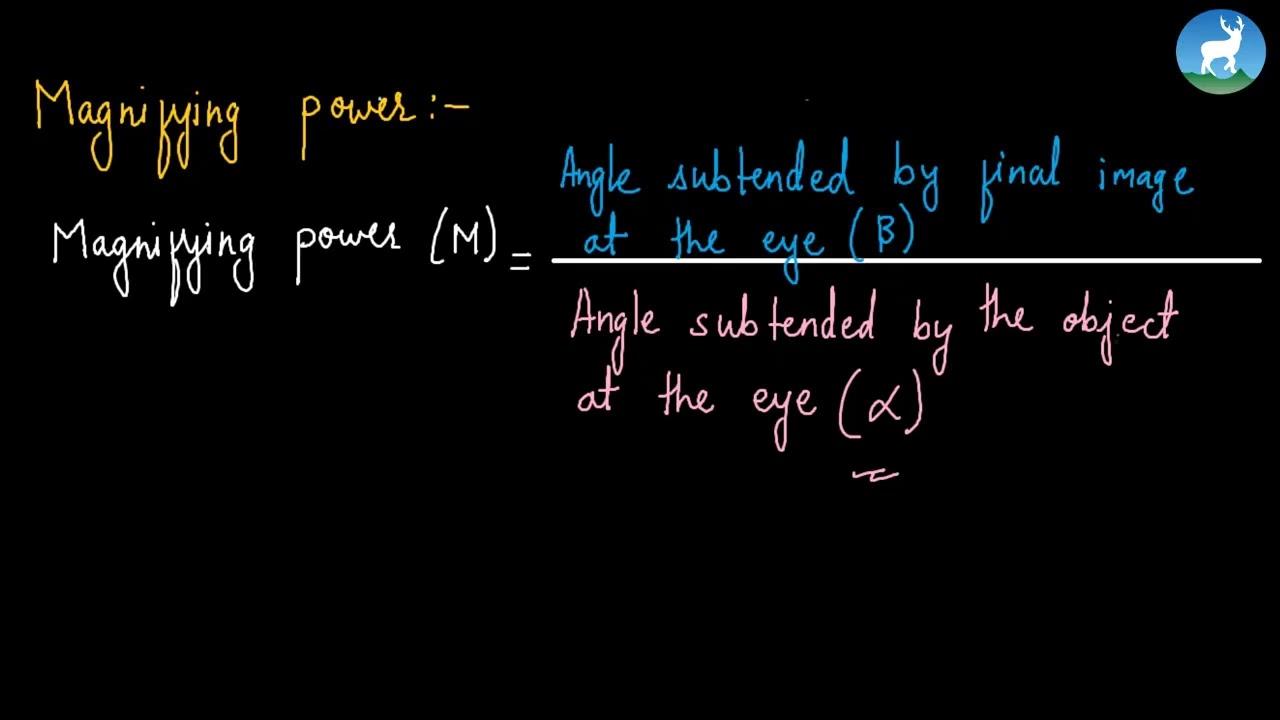 Magnifying power:-
Magnifying power (M) =
Angle subtended by final image
at the eye (β)
Angle subtended by the object
at the eye (α)